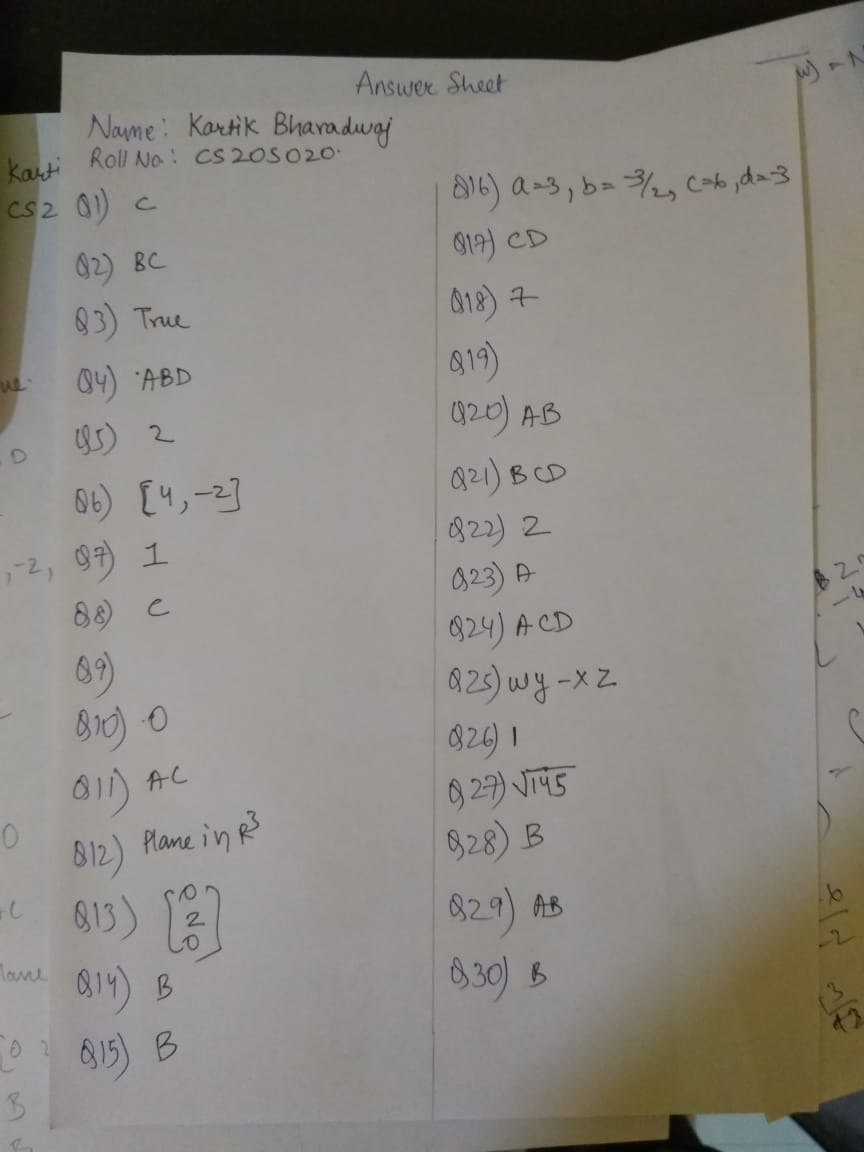 Answer Sheet
Name: Kartik Bharadwaj
Roll No: CS20S020.
Q1) C
Q2) BC
Q3) True
Q4) ABD
Q5) 2
Q6) [4, -2]
Q7) 1
Q8) C
Q9)
Q10) 0
Q11) AC
Q12) Plane in R³
Q13) [0 2 0]
Q14) B
Q15) B
Q16) a=3, b= -3/2, c=6, d=-3
Q17) CD
Q18) 7
Q19)
Q20) AB
Q21) BCD
Q22) 2
Q23) A
Q24) ACD
Q25) wy - xz
Q26) 1
Q27) √145
Q28) B
Q29) AB
Q30) B